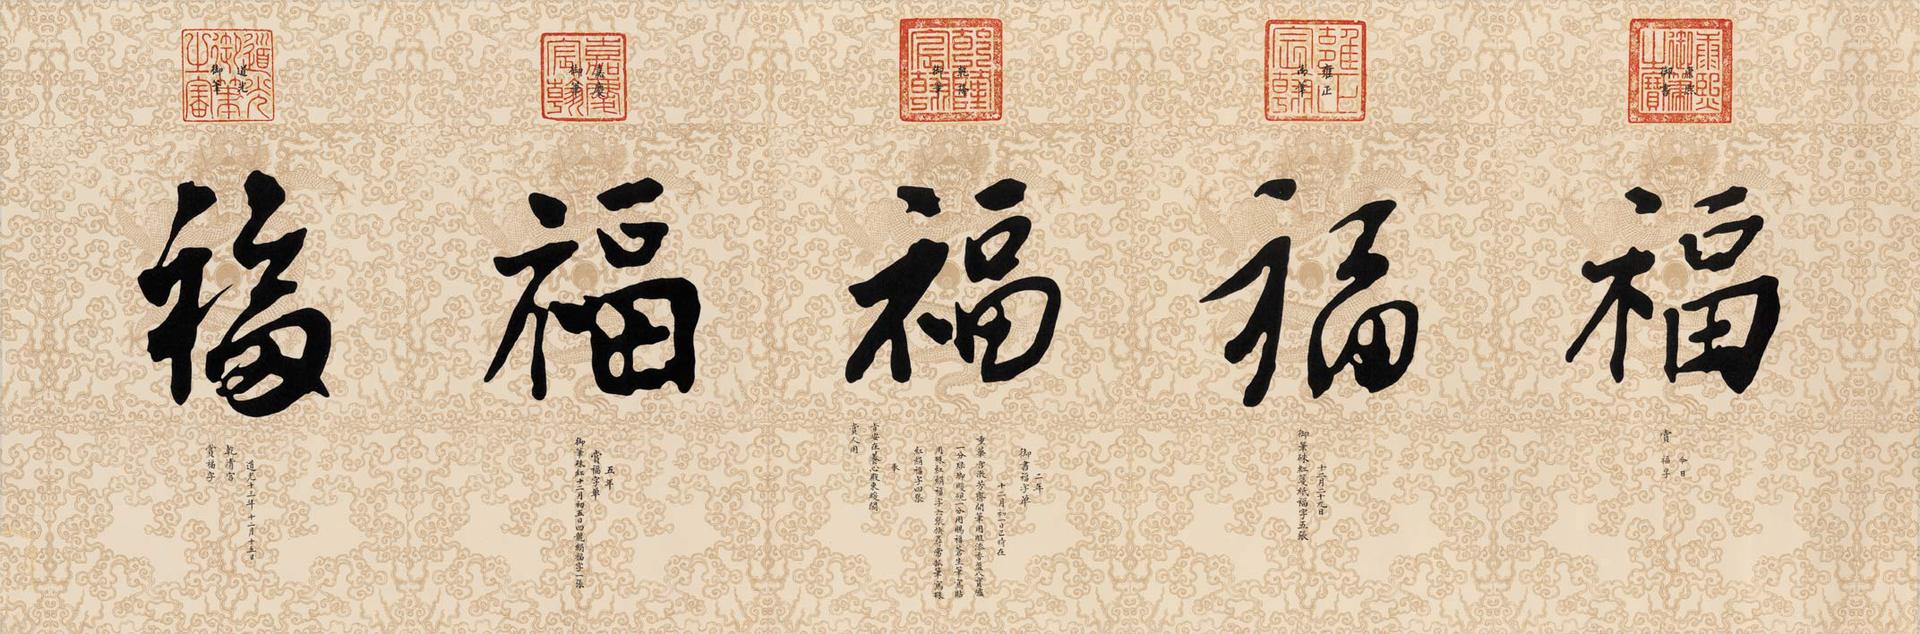 康熙御書之寶
康熙
御書
福
今日
賞福字
雍正宸翰
雍正
御筆
福
十二月二十九日
御筆硃紅箋紙福字五張
乾隆宸翰
乾隆
御筆
福
二年
御書福字單
十二月初一日巳時在
重華宮漱芳齋開筆用
紅絹福字四張
奉
旨安在養心殿東暖閣
賞人用
嘉慶宸翰
嘉慶
御筆
福
五年
賞福字單
御筆硃紅十二月初五日四龍絹福字一張
道光御筆之寶
道光
御筆
福
道光十三年十二月十五日
乾清宮
賞福字